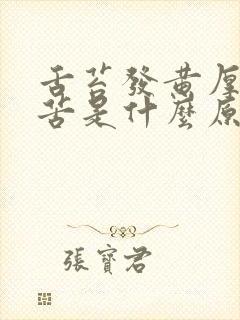 舌苔發黄厚
苦是什麼原
張寶君